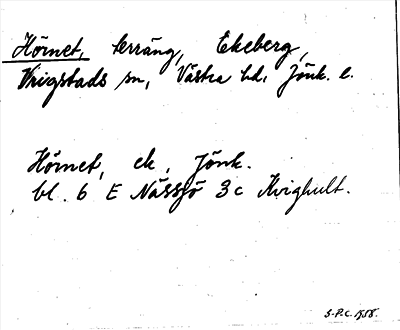 Hörnet, terräng, Ekeberg,
Vrigstads sn, Västra hd. Jönk. l.
Hörnet, ek, Jönk.
bl. 6 E Nässjö 3c Kvighult.
S.P.C. 1958.